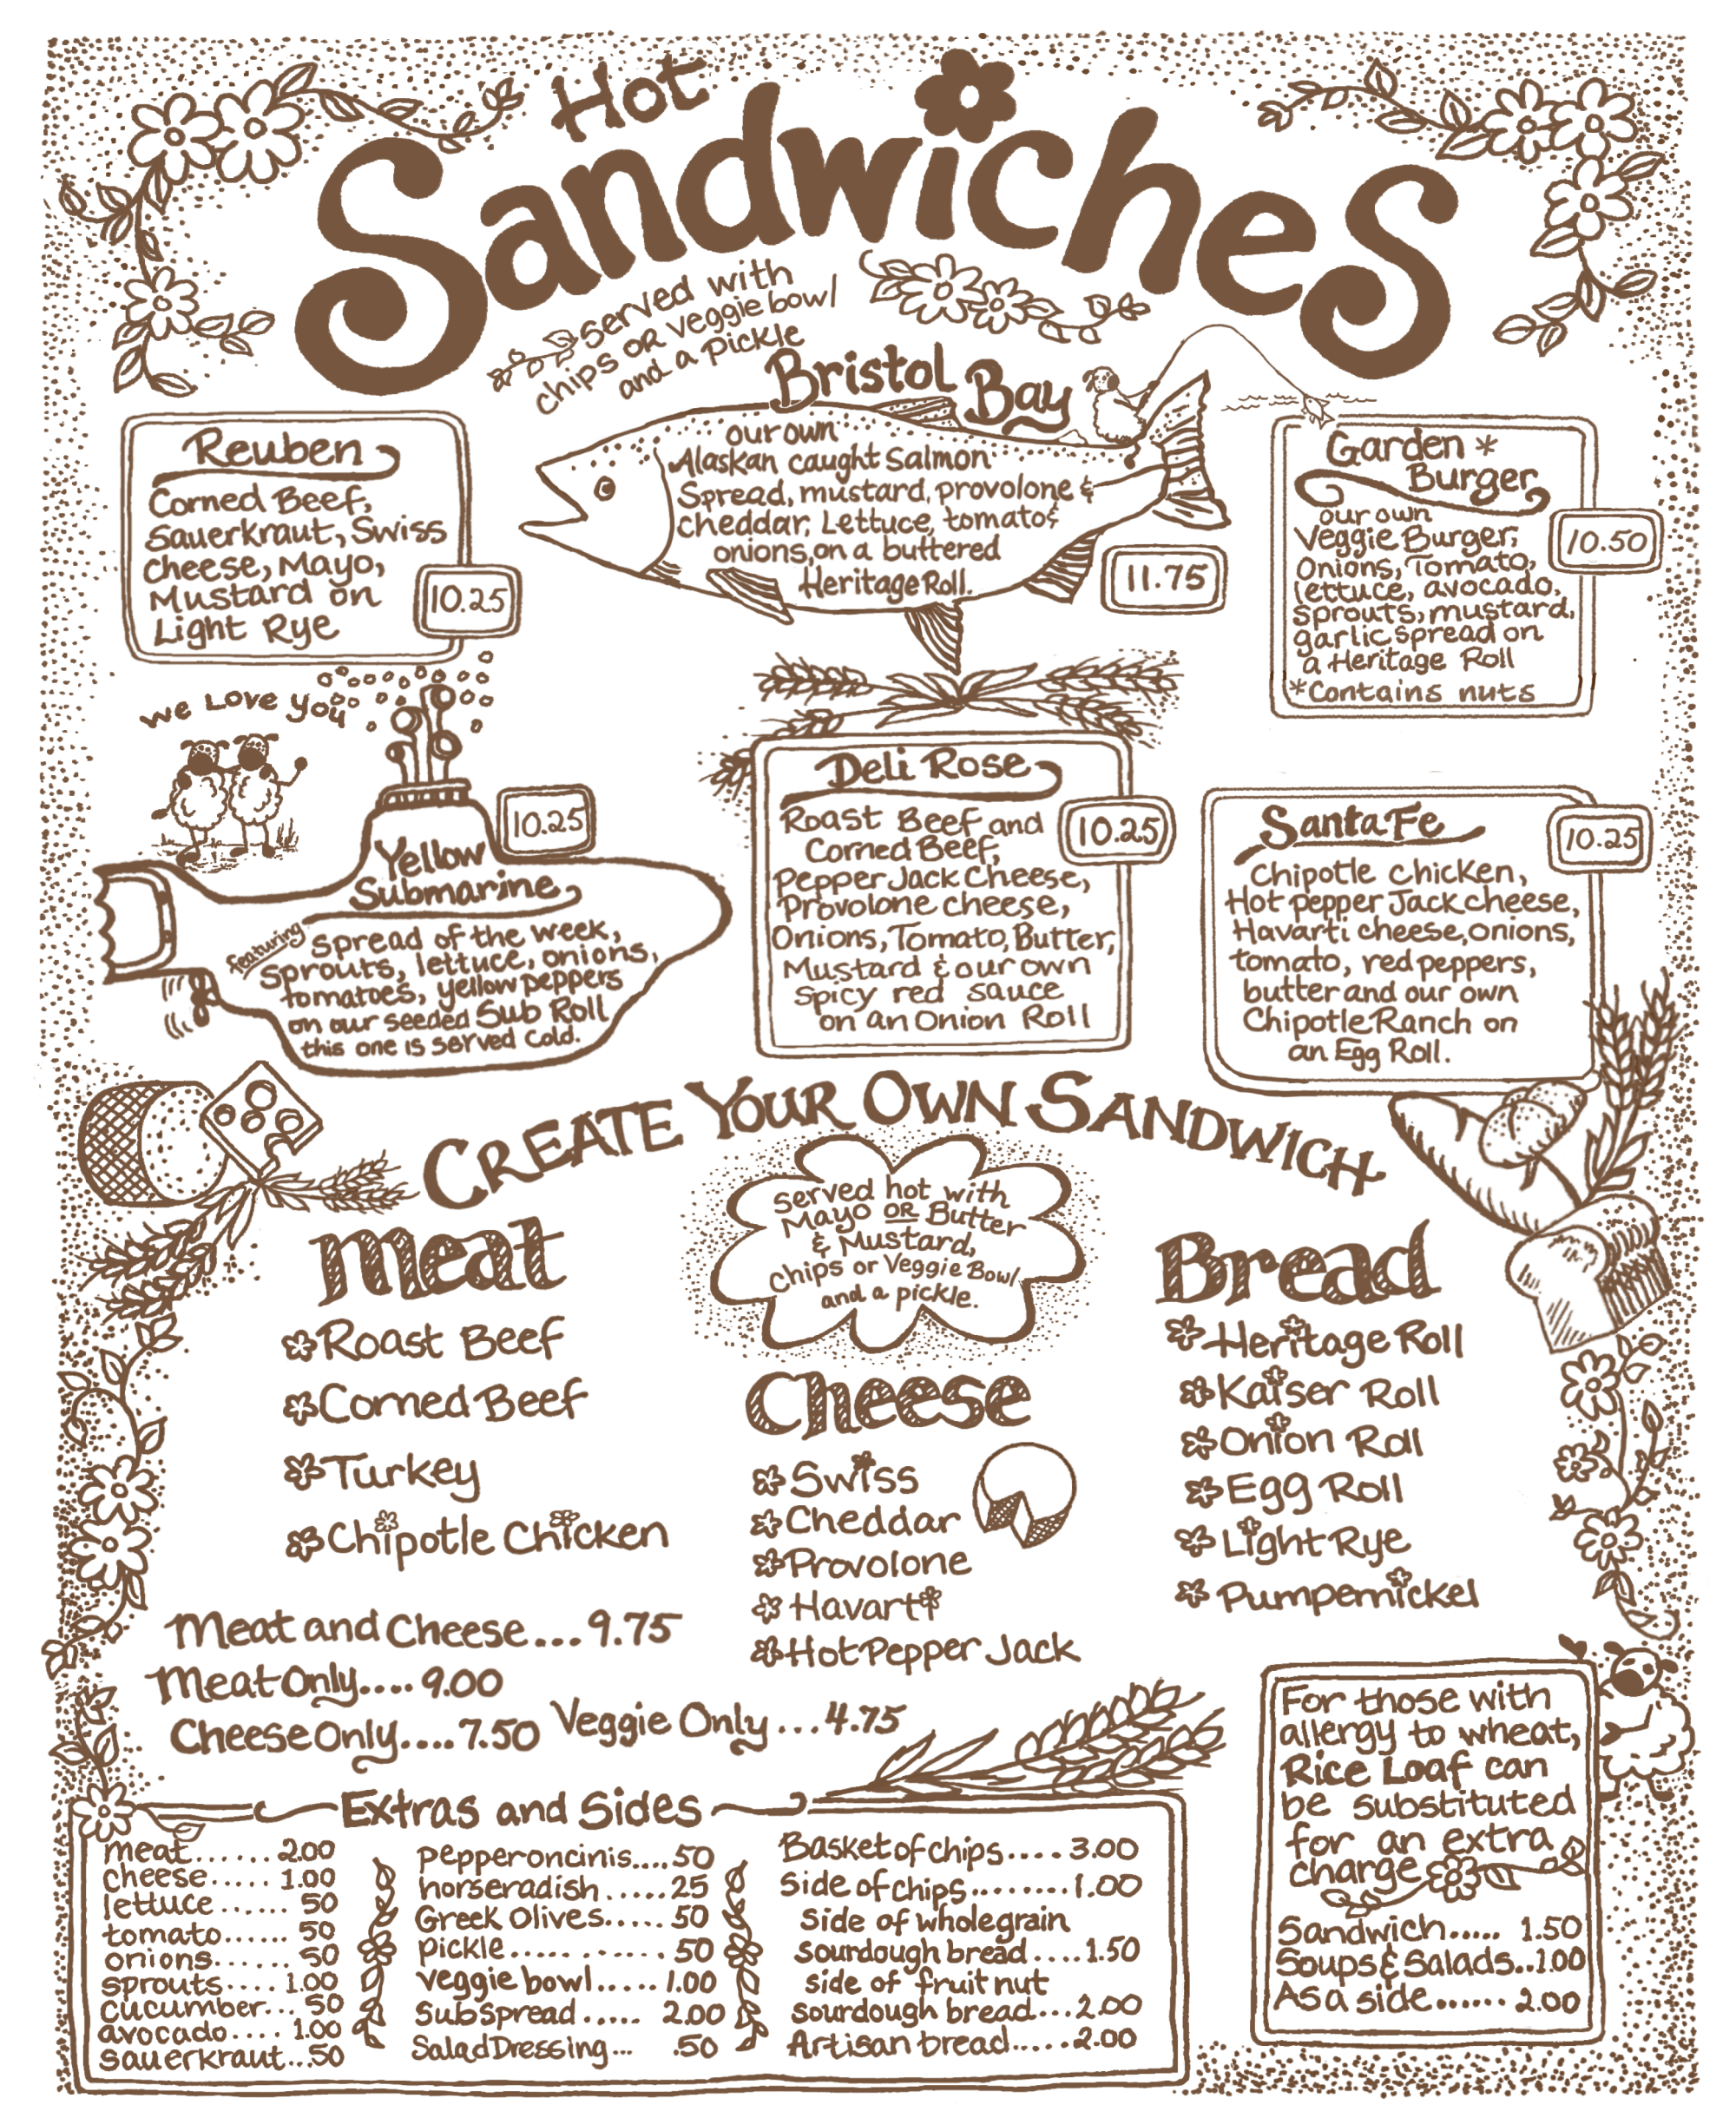 Hot
Sandwiches
served with
chips OR veggie bowl
and a pickle
Reuben
Corned Beef,
Sauerkraut, Swiss
Cheese, Mayo,
Mustard on
Light Rye
10.25
Bristol Bay
our own
Alaskan caught Salmon
Spread, mustard, provolone &
cheddar, Lettuce, tomato &
onions, on a buttered
Heritage Roll.
11.75
Garden *
Burger
our own
Veggie Burger,
Onions, Tomato,
lettuce, avocado,
sprouts, mustard,
garlic spread on
a Heritage Roll
*Contains nuts
10.50
we Love you
Yellow
Submarine
10.25
featuring
spread of the week,
Sprouts, lettuce, onions,
tomatoes, yellow peppers
on our seeded Sub Roll
this one is served cold.
Deli Rose
Roast Beef and
Corned Beef,
Pepper Jack Cheese,
Provolone cheese,
Onions, Tomato, Butter,
Mustard & our own
Spicy red sauce
on an Onion Roll
10.25
Santa Fe
Chipotle chicken,
Hot pepper Jack cheese,
Havarti cheese, onions,
tomato, red peppers,
butter and our own
Chipotle Ranch on
an Egg Roll.
10.25
CREATE YOUR OWN SANDWICH
served hot with
Mayo OR Butter
& Mustard,
Chips or Veggie Bowl
and a pickle.
Meat
Roast Beef
Corned Beef
Turkey
Chipotle Chicken
Cheese
Swiss
Cheddar
Provolone
Havarti
Hot Pepper Jack
Bread
Heritage Roll
Kaiser Roll
Onion Roll
Egg Roll
Light Rye
Pumpernickel
Meat and Cheese... 9.75
Meat Only.... 9.00
Cheese Only.... 7.50
Veggie Only... 4.75
Extras and Sides
meat...... 2.00
cheese..... 1.00
lettuce...... 50
tomato...... 50
onions...... 50
sprouts.... 1.00
cucumber... 50
avocado.... 1.00
sauerkraut...50
pepperoncinis....50
horseradish......25
Greek Olives..... 50
pickle........... 50
veggie bowl..... 1.00
Sub Spread..... 2.00
Salad Dressing... .50
Basket of chips.... 3.00
Side of chips.........1.00
Side of wholegrain
sourdough bread....1.50
side of fruit nut
sourdough bread...2.00
Artisan bread.....2.00
For those with
allergy to wheat,
Rice Loaf can
be substituted
for an extra
charge
Sandwich..... 1.50
Soups & Salads..1.00
As a side....... 2.00